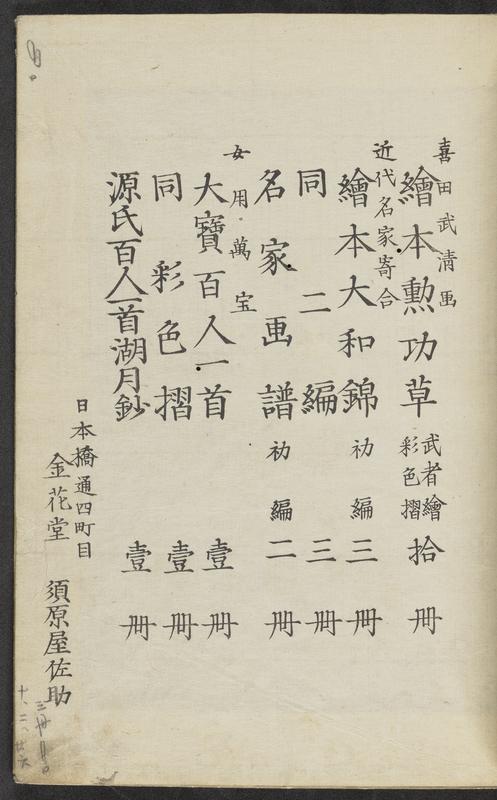 喜田武清画
繪本勲功草 武者繪彩色摺 拾冊
近代名家寄合
繪本大和錦 初編 三冊
同 二編 三冊
名家画譜 初編 二冊
女用萬宝
大寶百人一首 壹冊
同 彩色摺 壹冊
源氏百人一首湖月鈔 壹冊
日本橋通四町目
金花堂 須原屋佐助